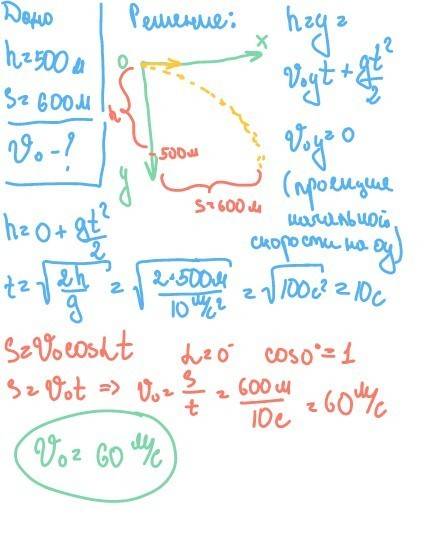 Дано
h=500м
s=600м
v₀-?
Решение:
0
x
h
500м
y
s=600м
h=y=
v₀yt+gt²/2
v₀y=0
(проекция
начальной
скорости на оу)
h=0+gt²/2
t=√(2h/g)=√(2·500м/10м/с²)=√100с²=10с
s=v₀cosαt α=0° cos0°=1
s=v₀t => v₀=s/t=600м/10с=60м/с
v₀=60м/с